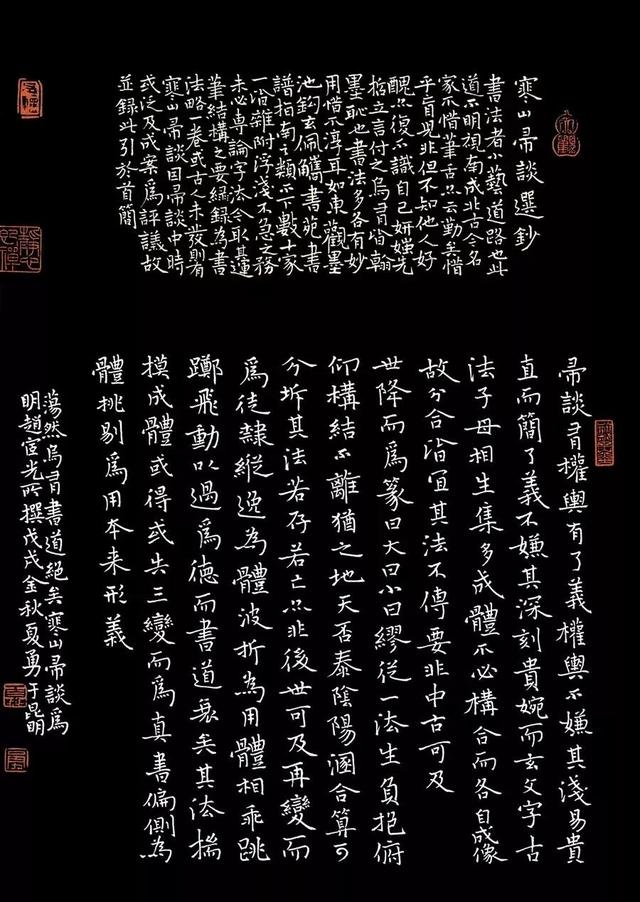 寒山帚談選鈔
書法者小藝道路也此
道不明視南成北古今名
家不惜筆舌亦云勤矣惜
乎盲兒非但不知他人好
醜亦復不識自己妍媸先
哲立言付之烏有皆翰
墨恥也書法多各有妙
用惜不淳耳如東觀墨
池鈎玄佩觿書苑書
譜指南之類不下數十家
一冶雜附浮淺不急之務
未必專論字法今取其運
筆結構之要編錄為書
法略一卷或古人未發則有
寒山帚談因帚談中時
或泛及成案為評議故
並錄此引於首簡
帚談有權輿有了義權輿不嫌其淺易貴
直而簡了義不嫌其深刻貴婉而玄文字古
法子母相生集多成體不必構合而各自成像
故分合皆宜其法不傳要非中古可及
世降而為篆曰大曰小曰繆從一法生負抱俯
仰構結不離猶之地天否泰陰陽涵合算可
分坼其法若存若亡亦非後世可及再變而
為徒隸縱逸為體波折為用體相乖跳
躑飛動以過為德而書道衰矣其法揣
摸成體或得或失三變而為真書偏側為
體挑剔為用本來形義
蕩然烏有書道絕矣寒山帚談為
明趙宦光所撰戊戌金秋夏勇于昆明